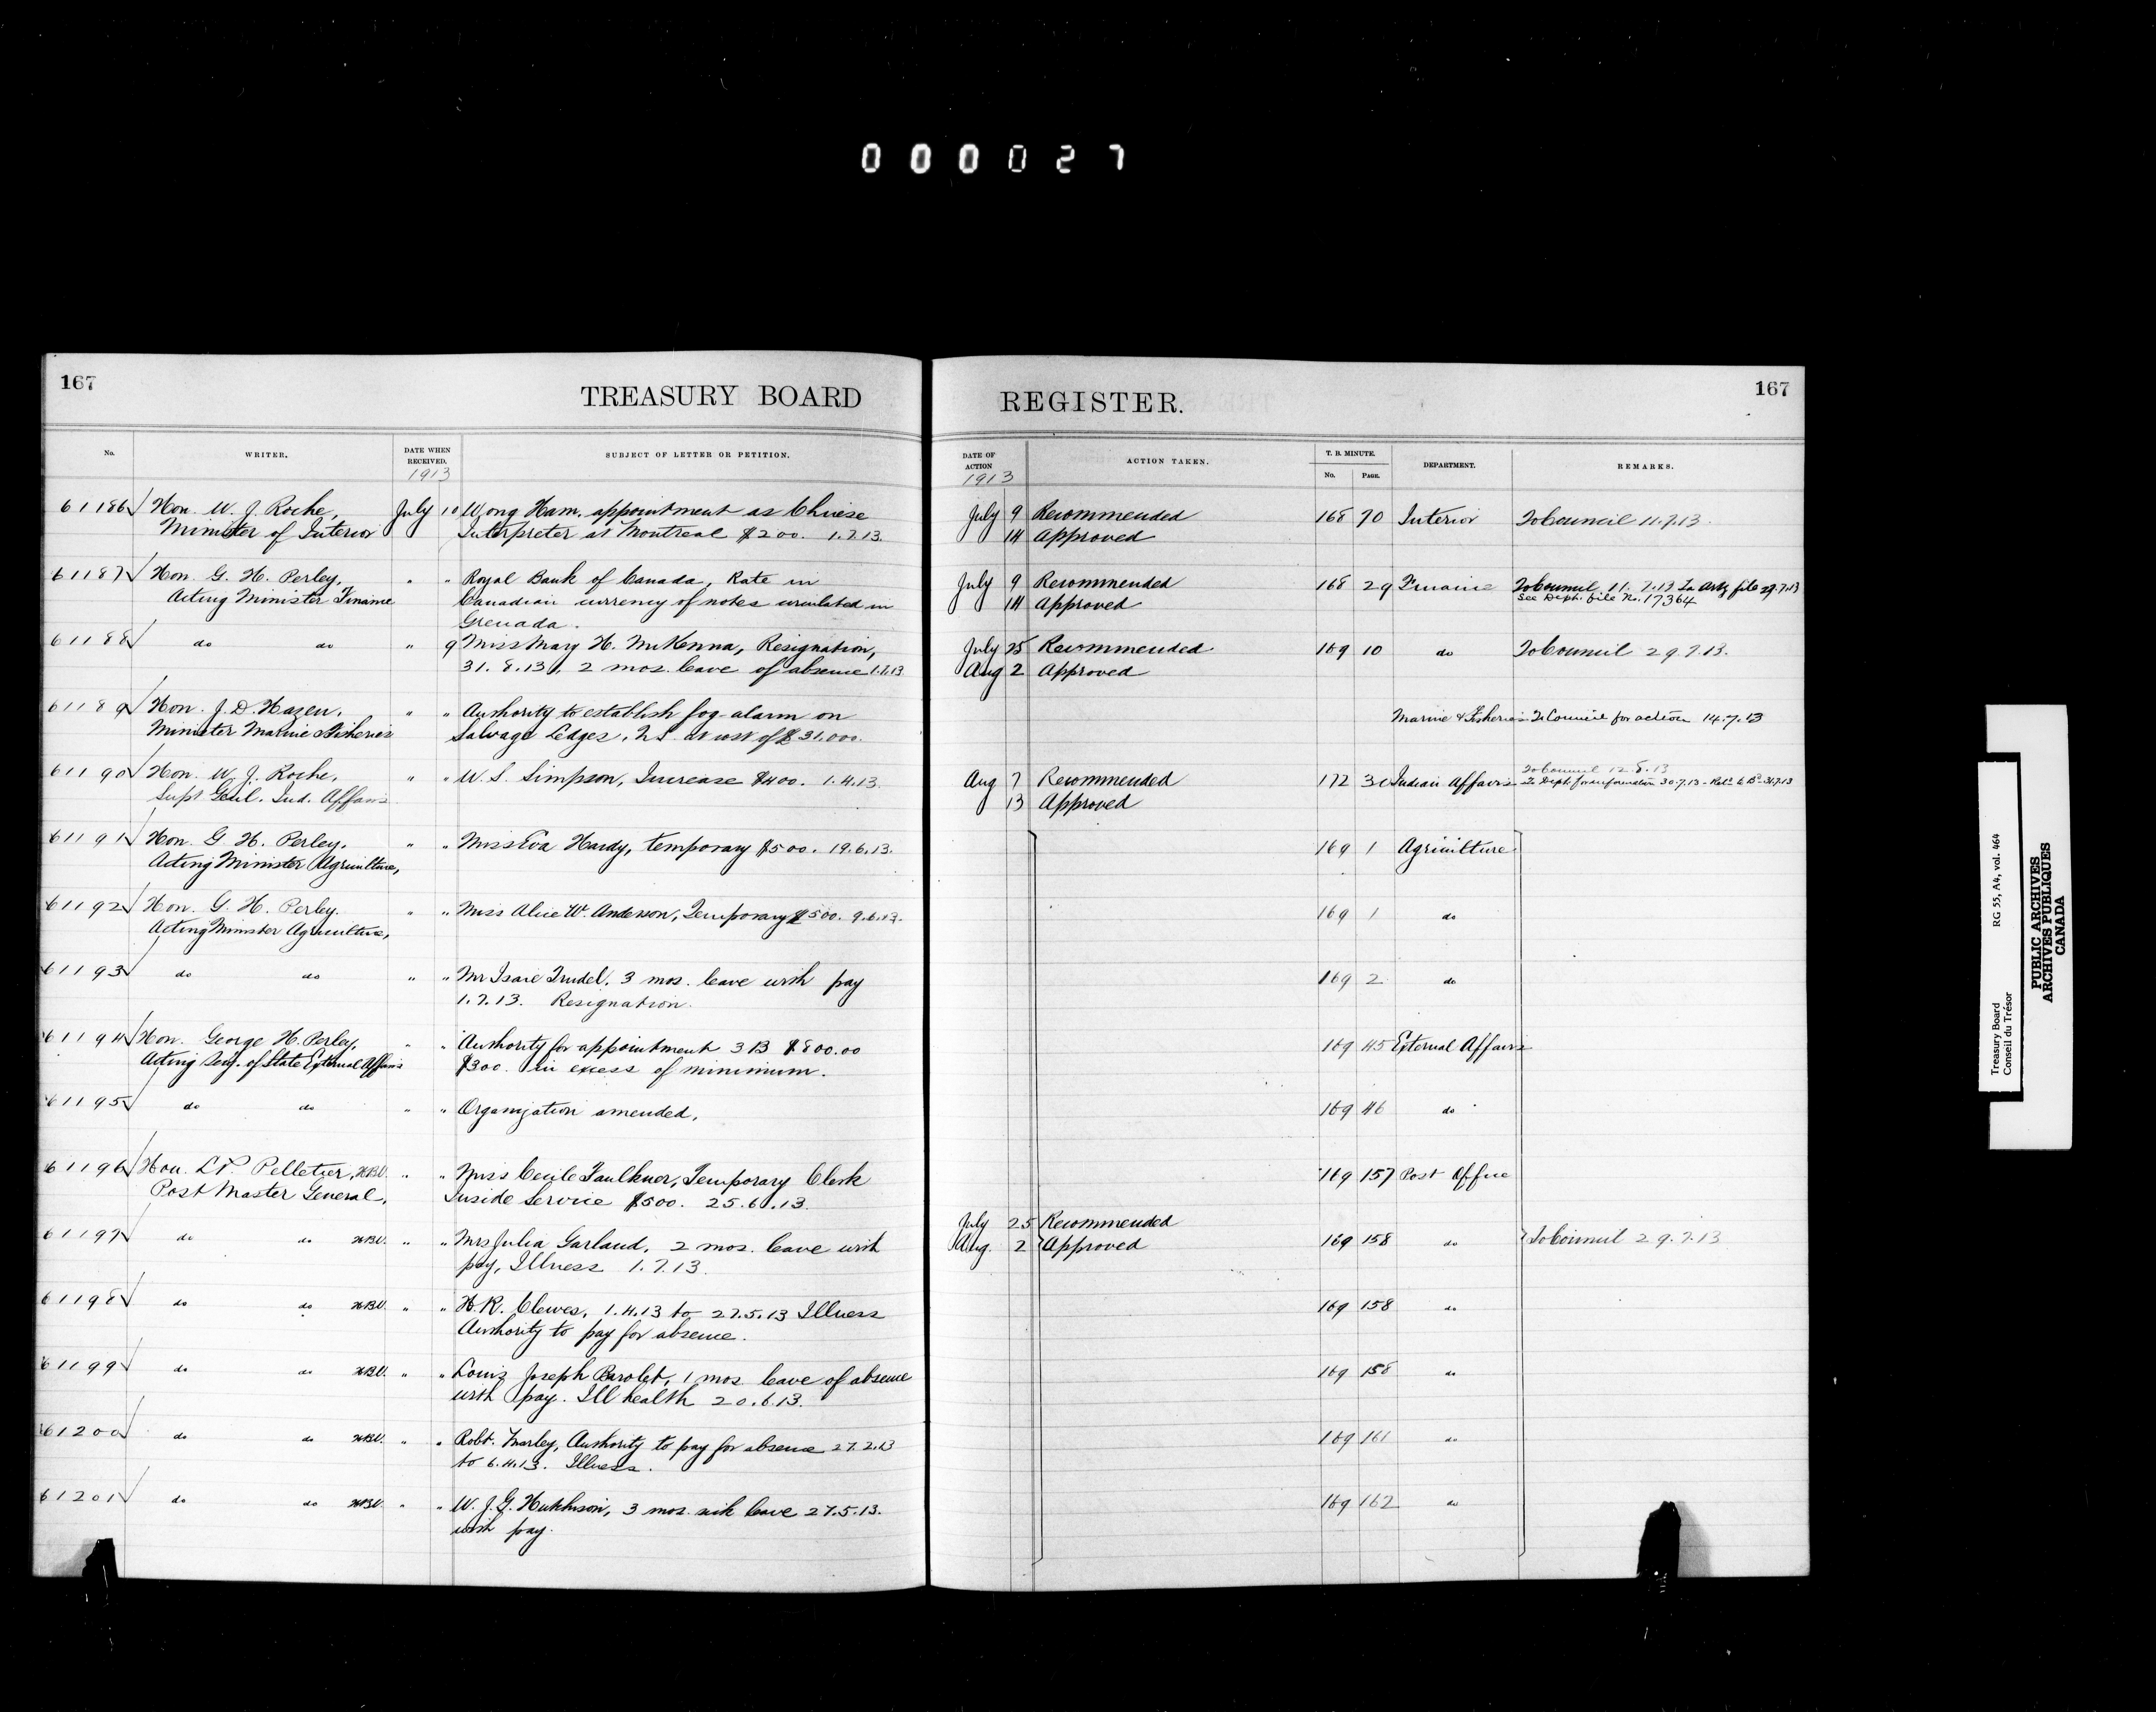 000027
167
TREASURY BOARD
No.
WRITER.
DATE WHEN RECEIVED.
1913
SUBJECT OF LETTER OR PETITION.
61186 Hon. W. J. Roche, July 10 Wong Ham. appointment as Chinese
Minister of Interior Interpreter at Montreal $200. 1.7.13.
61187 Hon. G. H. Perley, " " Royal Bank of Canada, Rate in
Acting Minister Finance Canadian currency of notes circulated in
Grenada.
61188 do do " 9 Miss Mary H. McKenna, Resignation,
31.8.13, 2 mos. leave of absence 1.7.13
61189 Hon. J. D. Hazen, " " Authority to establish fog-alarm on
Minister Marine & Fisheries Salvage Ledges, N.S. at cost of $31,000.
61190 Hon. W. J. Roche, " " W. S. Simpson, Increase $400. 1.4.13.
Supt Genl. Ind. Affairs
61191 Hon. G. H. Perley, " " Miss Eva Hardy, temporary $500. 19.6.13.
Acting Minister Agriculture,
61192 Hon. G. H. Perley. " " Miss Alice W. Anderson, Temporary $500. 9.6.13.
Acting Minister Agriculture,
61193 do do " " Mr Isaie Trudel. 3 mos. leave with pay
1.7.13. Resignation.
61194 Hon. George H. Perley, " " Authority for appointment 3 B $800.00
Acting Secy. of State External Affairs $300. in excess of minimum.
61195 do do " " Organization amended,
61196 Hon. L. P. Pelletier, " " Miss Cecile Faulkner, Temporary Clerk
Post Master General, Inside Service $500. 25.6.13.
61197 do do " " Mrs Julia Garland, 2 mos. leave with
pay, Illness 1.7.13.
61198 do do " " H. R. Clewes, 1.4.13 to 27.5.13 Illness
Authority to pay for absence.
61199 do do " " Louis Joseph Barolet, 1 mos. leave of absence
with pay. Ill health 20.6.13.
61200 do do " " Robt. Marley, Authority to pay for absence 27.2.13
to 6.4.13. Illness.
61201 do do " " W. J. G. Hutchison, 3 mos. sick leave 27.5.13.
with pay.
REGISTER.
167
DATE OF ACTION
1913
ACTION TAKEN.
T. B. MINUTE.
No.
PAGE.
DEPARTMENT.
REMARKS.
July 9 Recommended 168 70 Interior To Council 11.7.13.
14 Approved
July 9 Recommended 168 29 Finance To Council 11.7.13 file 29.7.13
14 Approved See Dept. file No. 17364
July 25 Recommended 169 10 do To Council 29.7.13.
Aug 2 Approved
Marine & Fisheries To Council for action 14.7.13
To Council 12.8.13
Aug 7 Recommended 172 30 Indian Affairs To Dept. for information 30.7.13 - 31.7.13
13 Approved
169 1 Agriculture
169 1 do
169 2 do
169 45 External Affairs
169 46 do
169 157 Post Office
July 25 Recommended
Aug. 2 Approved 169 158 do To Council 29.7.13
169 158 do
169 158 do
169 161 do
169 162 do
Treasury Board RG 55, A4, vol. 464
Conseil du Trésor
PUBLIC ARCHIVES
ARCHIVES PUBLIQUES
CANADA